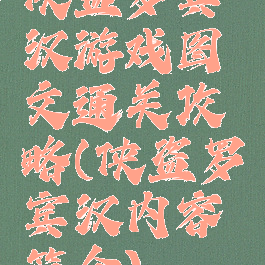 侠盗罗宾
汉游戏图
文通关攻
略(侠盗罗
宾汉内容
简介)